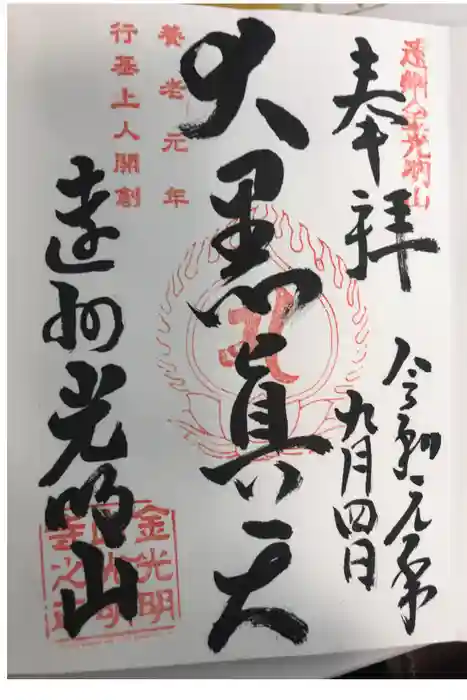 遠州金光明山
奉拝
令和元年
九月四日
大黒眞天
養老元年
行基上人開創
遠州光明山
金光明
山光明
寺之印